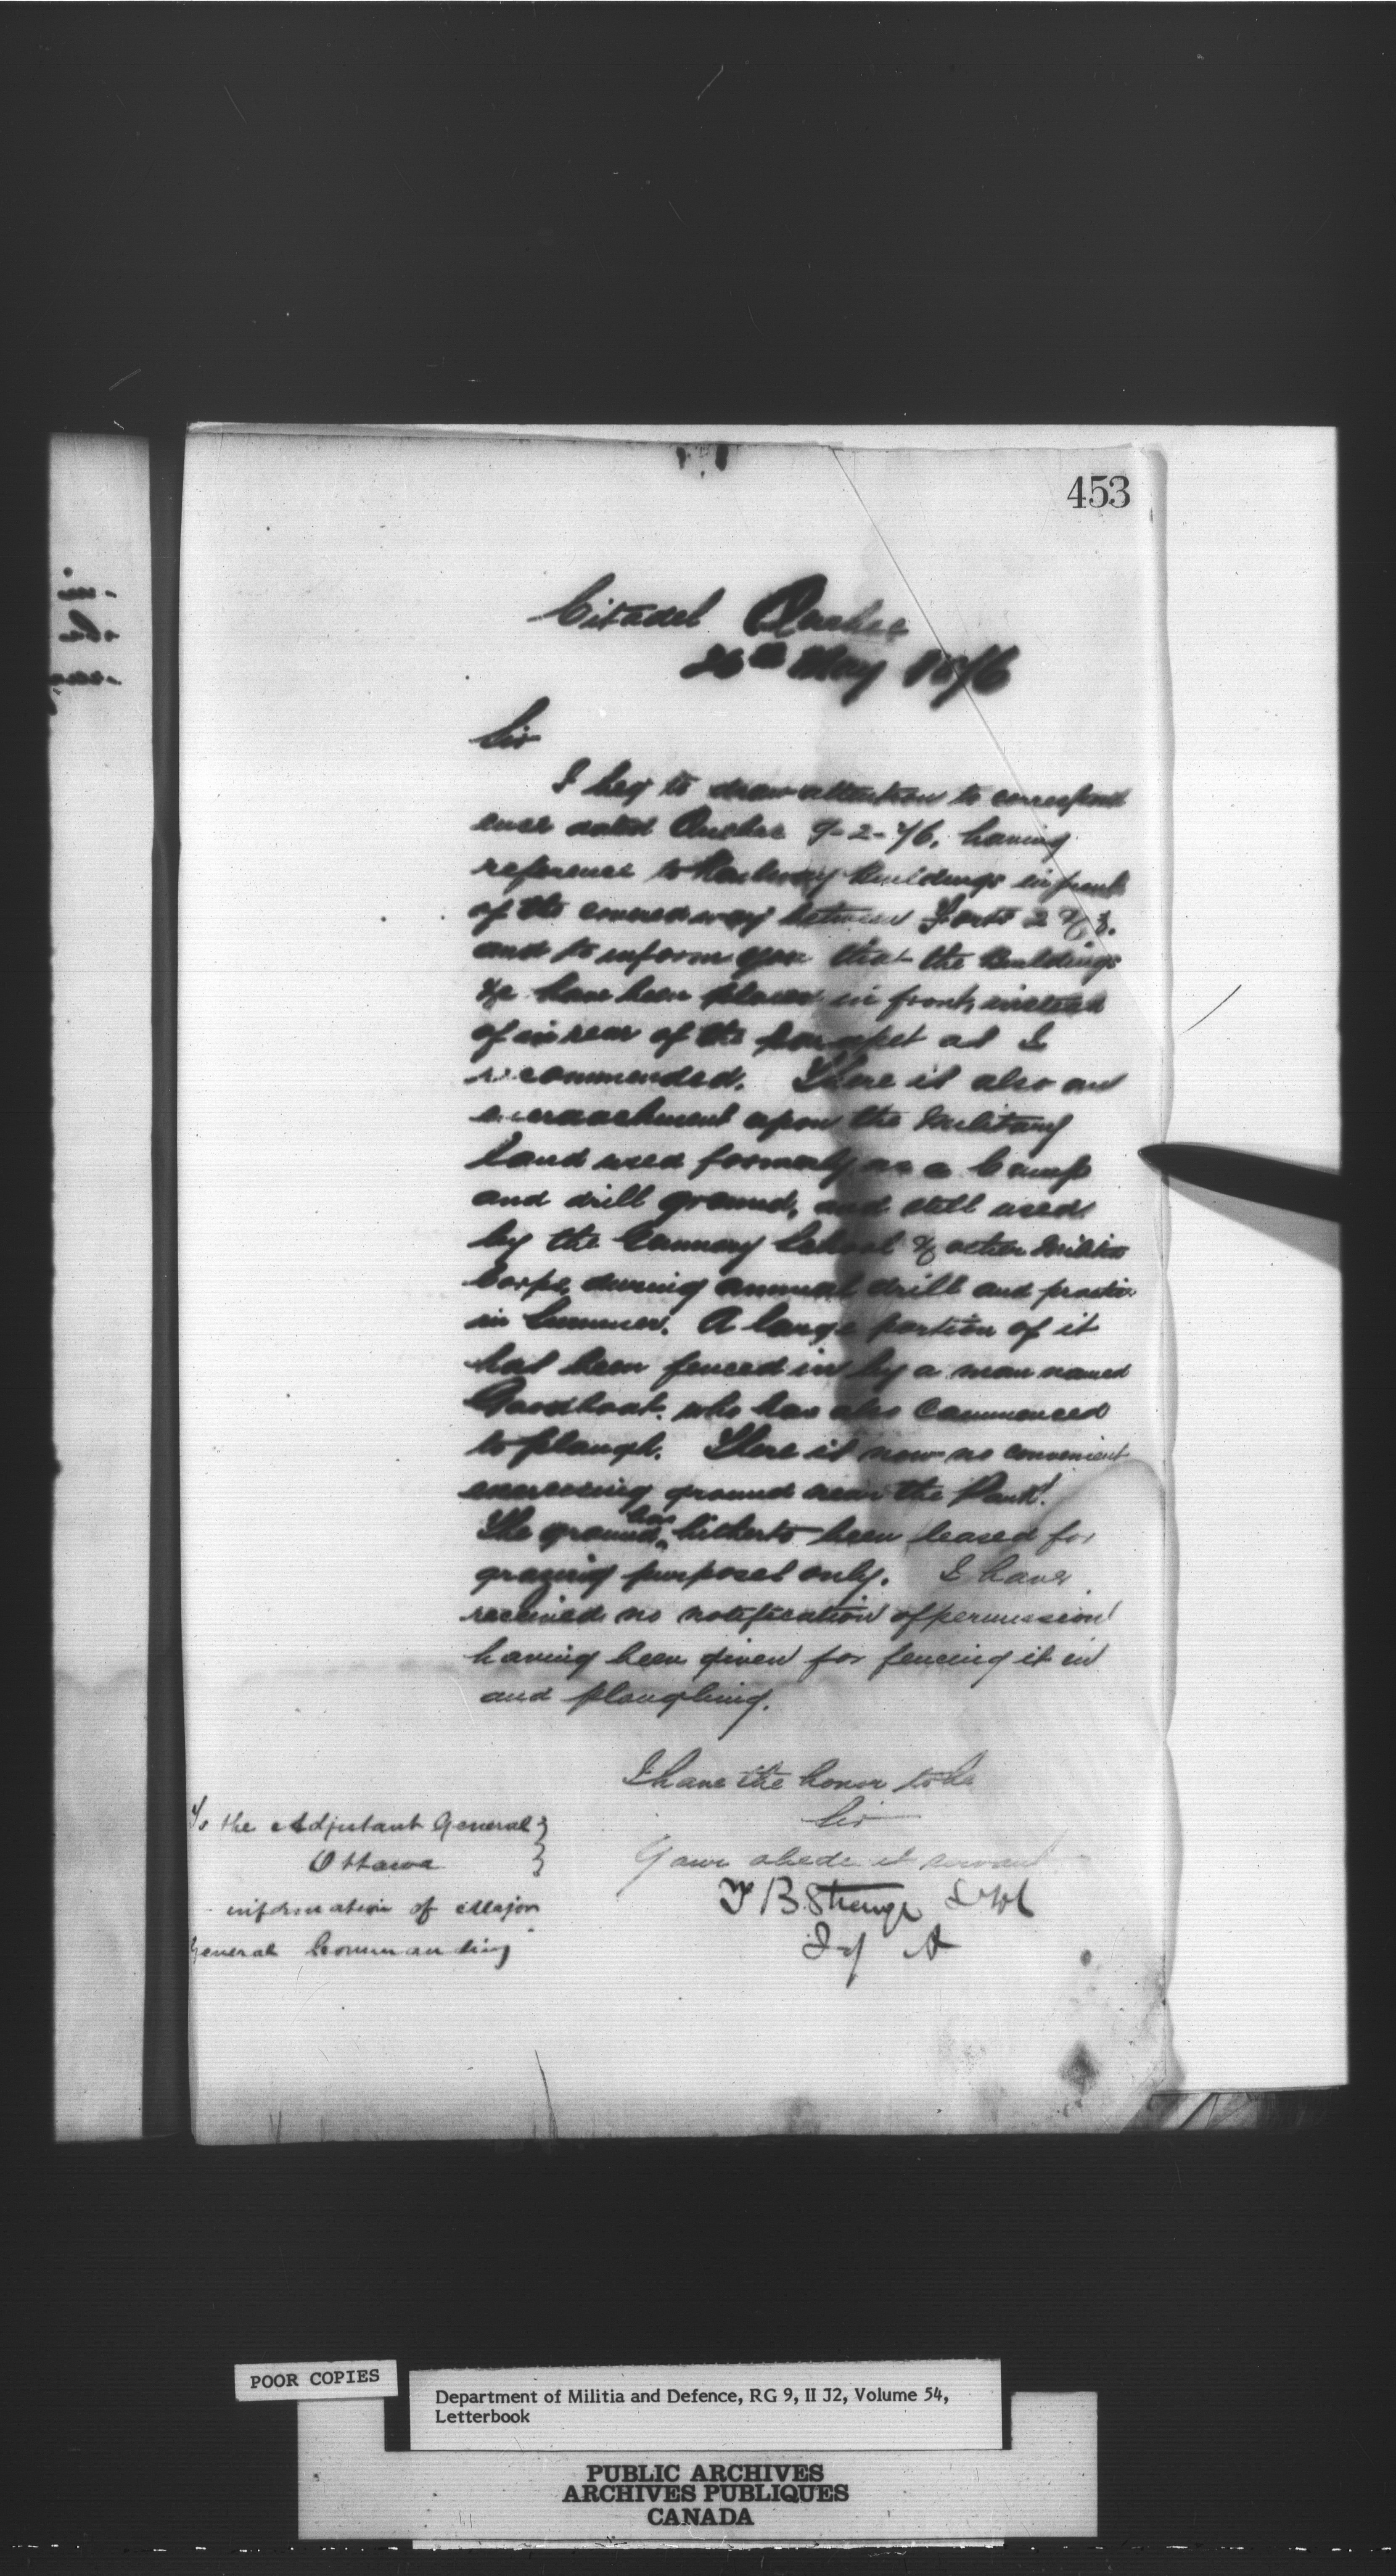 453
Citadel Quebec
26th May 1876
Sir
I beg to draw attention to correspond
ence dated Quebec 9-2-76, having
reference to Railway buildings in front
of the covered way between Forts 2 & 3.
and to inform you that the Buildings
&c have been placed in front, instead
of in rear of the parapet as I
recommended. There is also an
encroachment upon the Military
Land used formerly as a Camp
and drill ground, and still used
by the Gunnery School & other Militia
Corps, during annual drill and practice
in Summer. A large portion of it
has been fenced in by a man named
who has also Commenced
to plough. There is now no convenient
exercising ground near the
The ground, has hitherto been leased for
grazing purposes only. I have
received no notification of permission
having been given for fencing it in
and ploughing.
I have the honor to be
Sir
Your obedient servant
T B Strange Lt Col
To the Adjutant General
Ottawa
information of Major
General Commanding
POOR COPIES
Department of Militia and Defence, RG 9, II J2, Volume 54,
Letterbook
PUBLIC ARCHIVES
ARCHIVES PUBLIQUES
CANADA